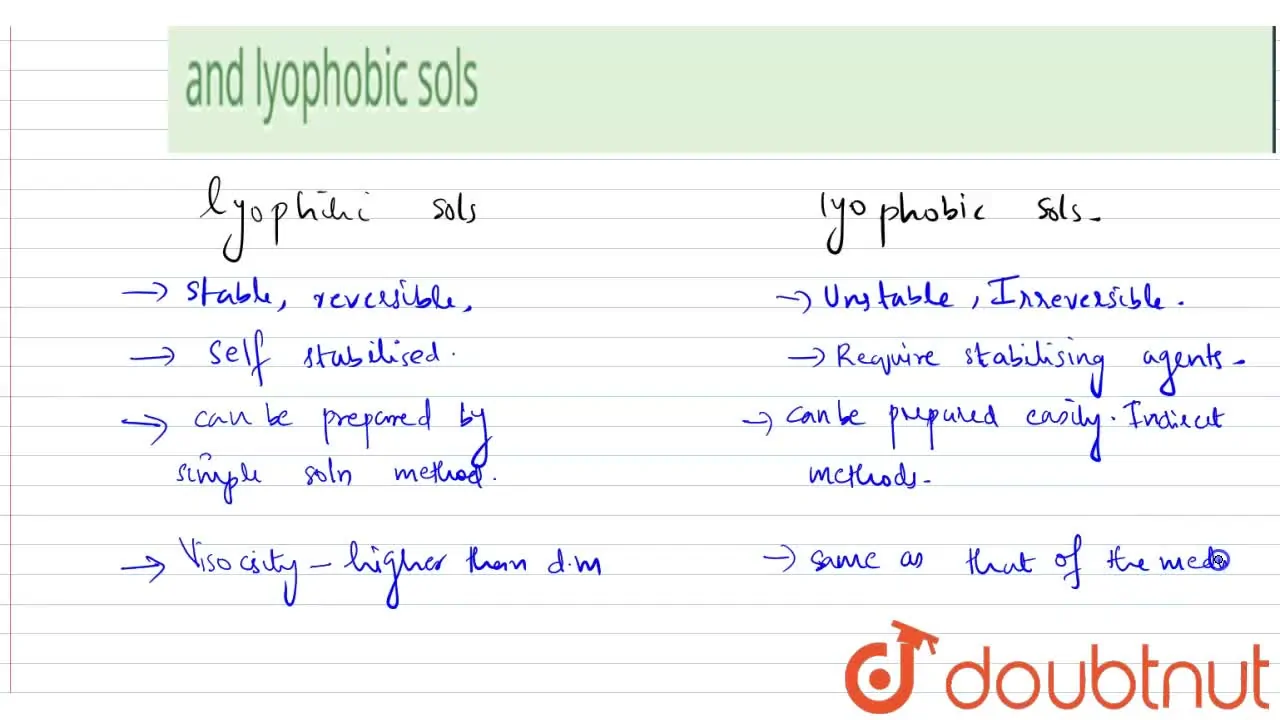 and lyophobic sols
lyophilic sols
lyophobic sols-
→ stable, reversible,
→ Unstable, Irreversible.
→ self stabilised.
→ Require stabilising agents-
→ can be prepared by
→ can be prepared easily. Indirect
simple soln method.
methods-
→ Visocity - higher than d.m
→ same as that of the med
doubtnut